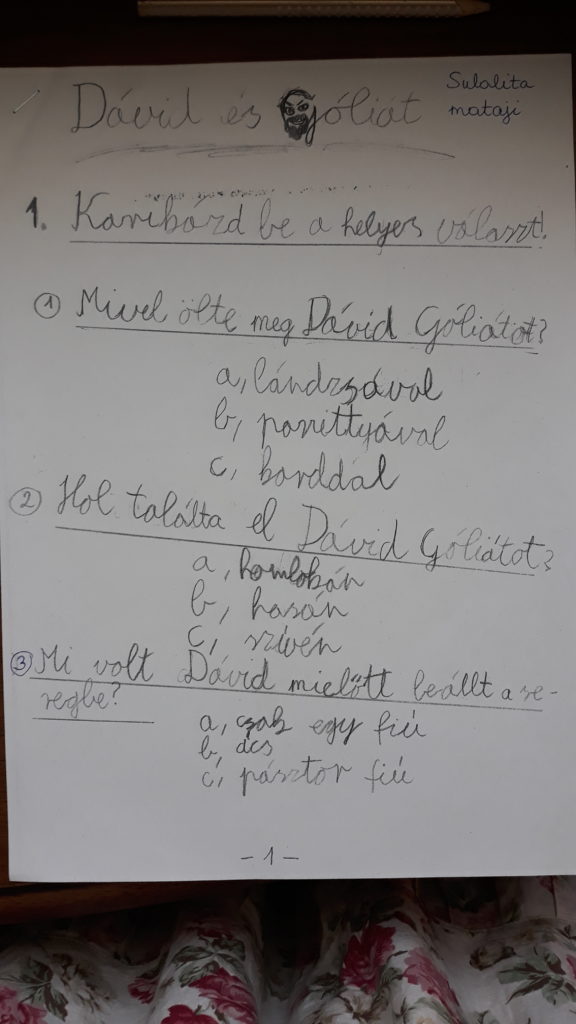 Dávid és Góliát
Sulalita
mataji
1. Karikázd be a helyes választ!
① Mivel ölte meg Dávid Góliátot?
a, lándzsával
b, parittyával
c, barddal
② Hol találta el Dávid Góliátot?
a, homlokán
b, hasán
c, szívén
③ Mi volt Dávid mielőtt beállt a se-
regbe?
a, csak egy fiú
b, ács
c, pásztor fiú
- 1 -